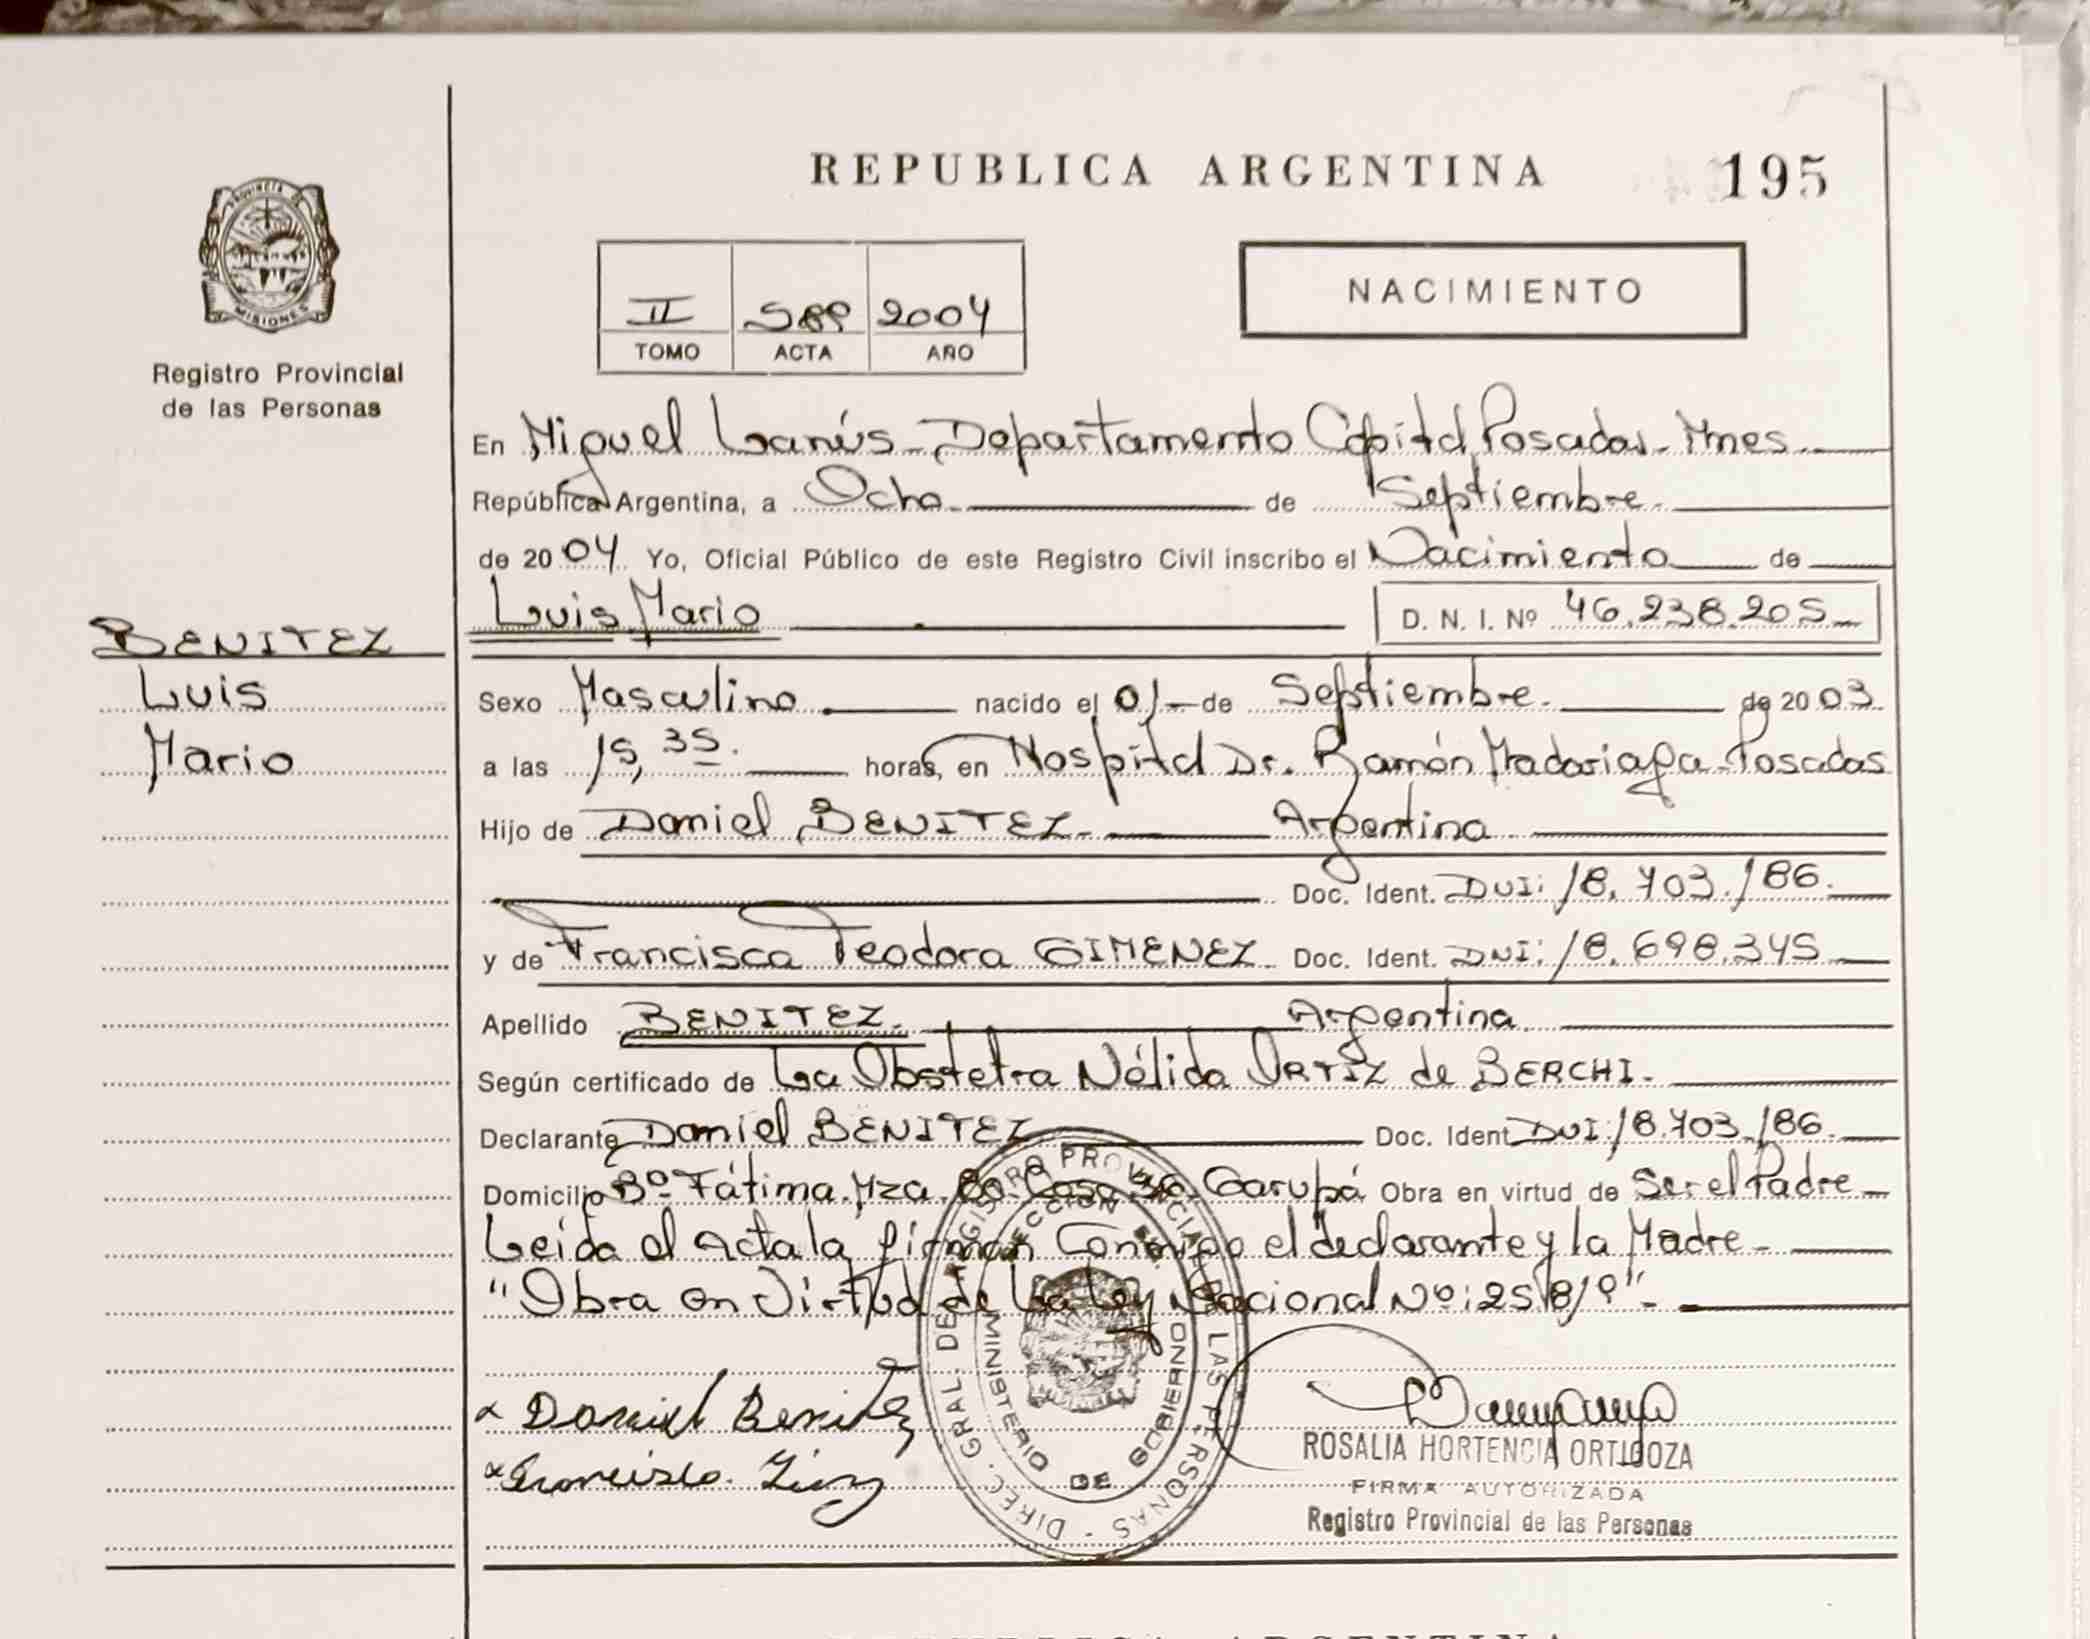 REPUBLICA ARGENTINA
195
PROVINCIA
MISIONES
Registro Provincial
de las Personas
II 2004
TOMO ACTA AÑO
NACIMIENTO
En Miguel Lanús - Departamento Capital Posadas - Mnes
República Argentina, a Ocho de Septiembre
de 2004 Yo, Oficial Público de este Registro Civil inscribo el Nacimiento de
Luis Mario D. N. I. Nº 46.238.205
BENITEZ
Luis
Mario
Sexo Masculino nacido el 01 de Septiembre de 2003
a las 15,35. horas, en Hospital Dr. Ramón Madariaga - Posadas
Hijo de Daniel BENITEZ Argentina
Doc. Ident. DNI: 18.703.186.
y de Francisca Teodora GIMENEZ Doc. Ident. DNI: 18.698.345
Apellido BENITEZ. Argentina
Según certificado de La Obstetra Nélida ORTIZ de BERCHI.
Declarante Daniel BENITEZ Doc. Ident DNI: 18.703.186.
Domicilio Bº Fátima. Mza. Casa Garupá Obra en virtud de Ser el Padre
Leida el Acta la firman Conmigo el declarante y la Madre
"Obra en Virtud de La Ley Nacional Nº: 25819"
Daniel Benitez
DIREC. GRAL. DEL REGISTRO PROVINCIAL DE LAS PERSONAS
MINISTERIO DE GOBIERNO
ROSALIA HORTENCIA ORTIGOZA
FIRMA AUTORIZADA
Registro Provincial de las Personas
REPUBLICA ARGENTINA